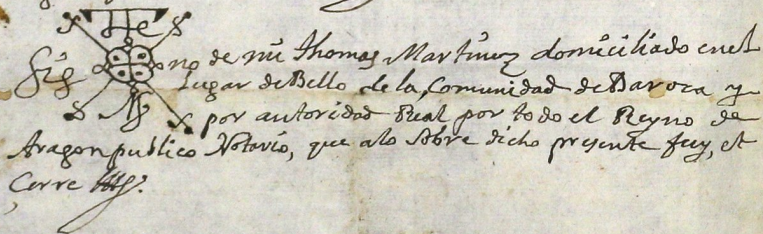 Sig no de mi Thomas Martinez domiciliado en el
Lugar de Bello de la Comunidad de Daroca y
por autoridad Real por todo el Reyno de
Aragon publico Notario, que a lo sobre dicho presente fuy, et
Cerre